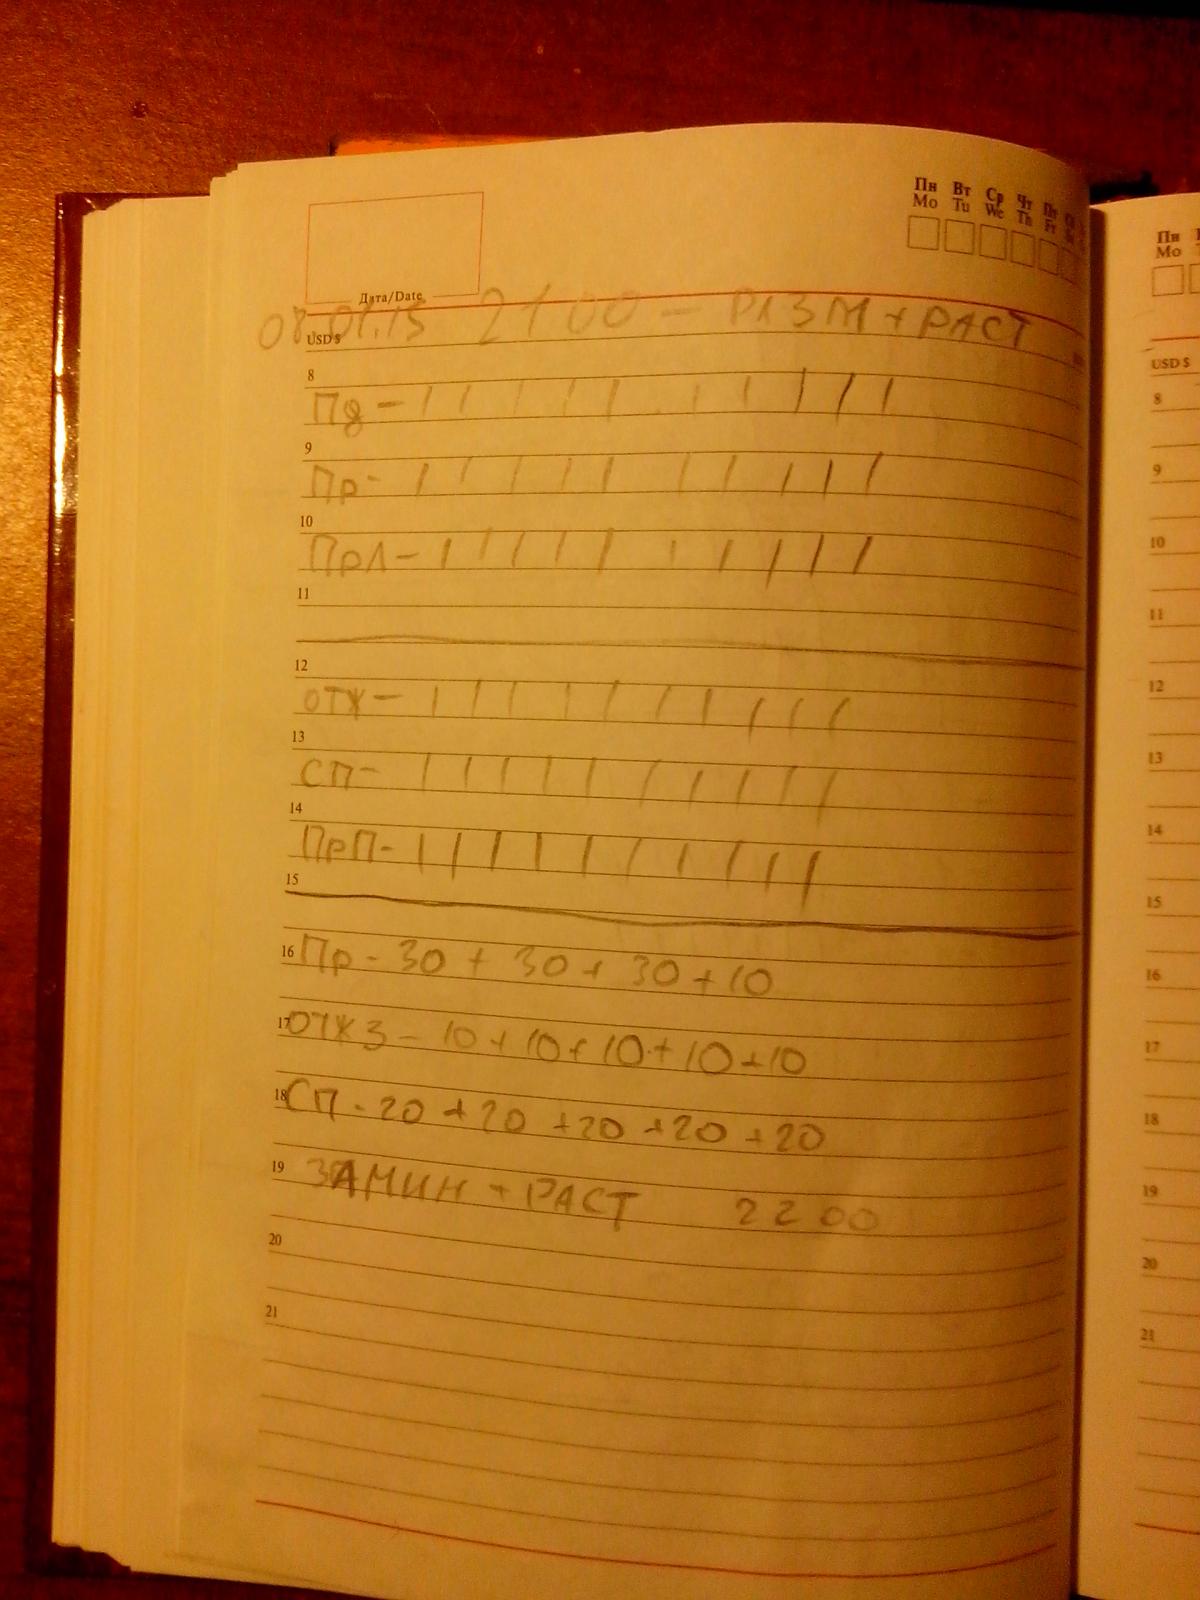 Пн Вт Ср Чт Пт
Mo Tu We Th Fr
Дата/Date
08.01.15 21 00 – РАЗМ + РАСТ
USD $
8
Пд – | | | | | | | | | |
9
Пр - | | | | | | | | | |
10
ПрЛ – | | | | | | | | | |
11
12
ОТЖ – | | | | | | | | | |
13
СП – | | | | | | | | | |
14
ПрП - | | | | | | | | | |
15
16 Пр - 30 + 30 + 30 + 10
17 ОТЖЗ – 10 + 10 + 10 + 10 + 10
18 СП - 20 + 20 + 20 + 20 + 20
19 ЗАМИН + РАСТ 22 00
20
21
Пн
Mo
USD $
8
9
10
11
12
13
14
15
16
17
18
19
20
21